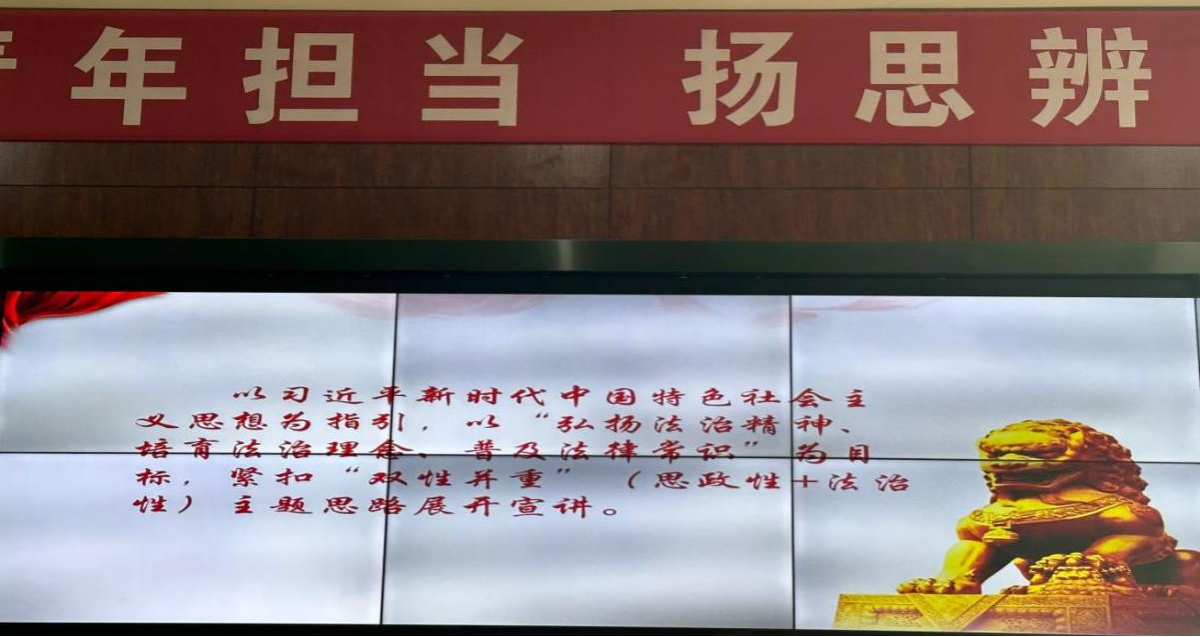 年担当 扬思辨
以习近平新时代中国特色社会主
义思想为指引，以“弘扬法治精神、
培育法治理念、普及法律常识”为目
标，紧扣“双性并重”（思政性+法治
性）主题思路展开宣讲。